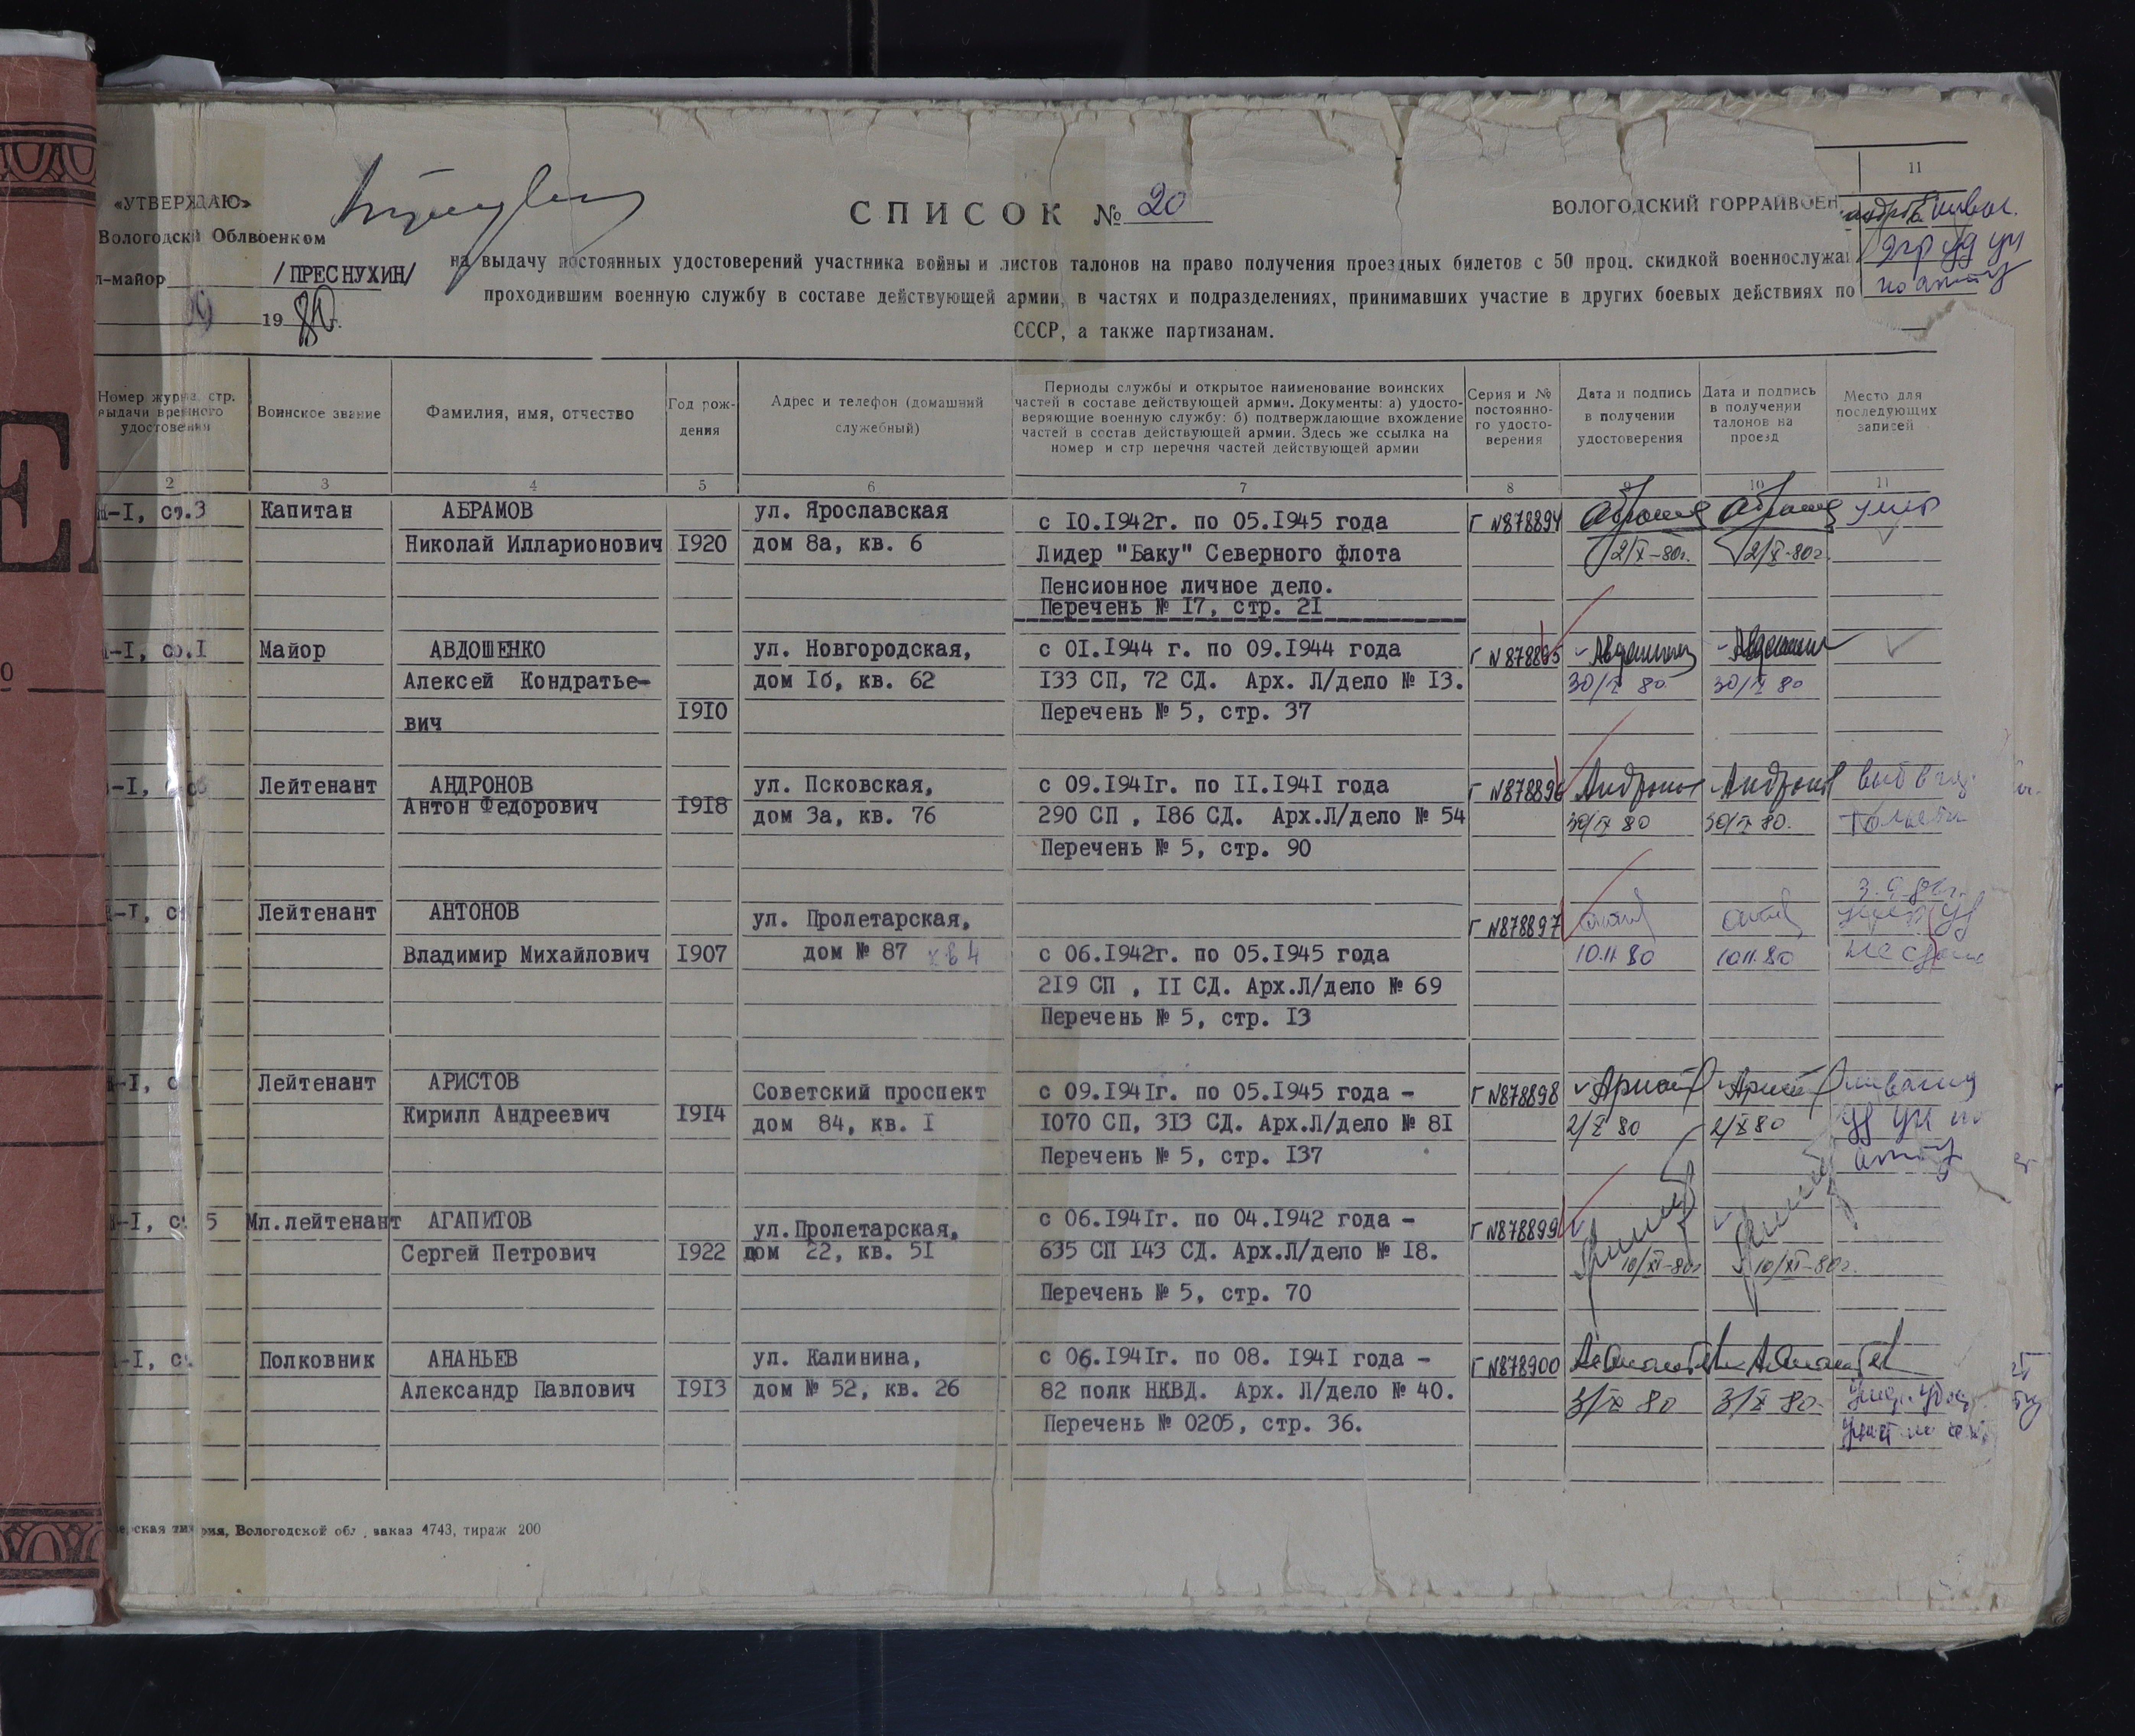 11
«УТВЕРЖДАЮ»
СПИСОК № 20
ВОЛОГОДСКИЙ ГОРРАЙВОЕН
Вологодски Облвоенком
л-майор /ПРЕСНУХИН/
на выдачу постоянных удостоверений участника войны и листов талонов на право получения проездных билетов с 50 проц. скидкой военнослужа
проходившим военную службу в составе действующей армии, в частях и подразделениях, принимавших участие в других боевых действиях по
1980г.
СССР, а также партизанам.
Номер журна стр. выдачи временного удостовения
Воинское звание
Фамилия, имя, отчество
Год рож-
дения
Адрес и телефон (домашний
служебный)
Периоды службы и открытое наименование воинских
частей в составе действующей армии. Документы: а) удосто-
веряющие военную службу: б) подтверждающие вхождение
частей в состав действующей армии. Здесь же ссылка на
номер и стр перечня частей действующей армии
Серия и №
постоянно-
го удосто-
верения
Дата и подпись
в получении
удостоверения
Дата и подпись
в получении
талонов на
проезд
Место для
последующих
записей
2 3 4 5 6 7 8 9 10 11
-I, ст.3 Капитан АБРАМОВ ул. Ярославская
с 10.1942г. по 05.1945 года Г №878894
Николай Илларионович 1920 дом 8а, кв. 6
Лидер "Баку" Северного флота 2/X-80г. 2/X-80г.
Пенсионное личное дело.
Перечень № 17, стр. 21
-I, ст.I Майор АВДОШЕНКО ул. Новгородская, с 01.1944 г. по 09.1944 года Г №878895
Алексей Кондратье- дом 1б, кв. 62 133 СП, 72 СД. Арх. Л/дело № 13. 30/IX 80 30/IX 80
вич 1910 Перечень № 5, стр. 37
-I, Лейтенант АНДРОНОВ ул. Псковская, с 09.1941г. по 11.1941 года Г №878896
Антон Федорович 1918 дом 3а, кв. 76 290 СП , 186 СД. Арх.Л/дело № 54 30/IX 80 30/IX 80.
Перечень № 5, стр. 90
-I, Лейтенант АНТОНОВ ул. Пролетарская, Г №878897
Владимир Михайлович 1907 дом № 87 кв 4 с 06.1942г. по 05.1945 года 10.11.80 10.11.80
219 СП , 11 СД. Арх.Л/дело № 69
Перечень № 5, стр. 13
-I, Лейтенант АРИСТОВ Советский проспект с 09.1941г. по 05.1945 года - Г №878898
Кирилл Андреевич 1914 дом 84, кв. 1 1070 СП, 313 СД. Арх.Л/дело № 81 2/X 80 2/X 80
Перечень № 5, стр. 137
-I, 5 Мл.лейтенант АГАПИТОВ ул.Пролетарская, с 06.1941г. по 04.1942 года - Г №878899
Сергей Петрович 1922 дом 22, кв. 51 635 СП 143 СД. Арх.Л/дело № 18. 10/XI-80г 10/XI-80г.
Перечень № 5, стр. 70
-I, Полковник АНАНЬЕВ ул. Калинина, с 06.1941г. по 08. 1941 года - Г №878900
Александр Павлович 1913 дом № 52, кв. 26 82 полк НКВД. Арх. Л/дело № 40. 3/X 80 3/X 80
Перечень № 0205, стр. 36.
Вологодской обл , заказ 4743, тираж 200